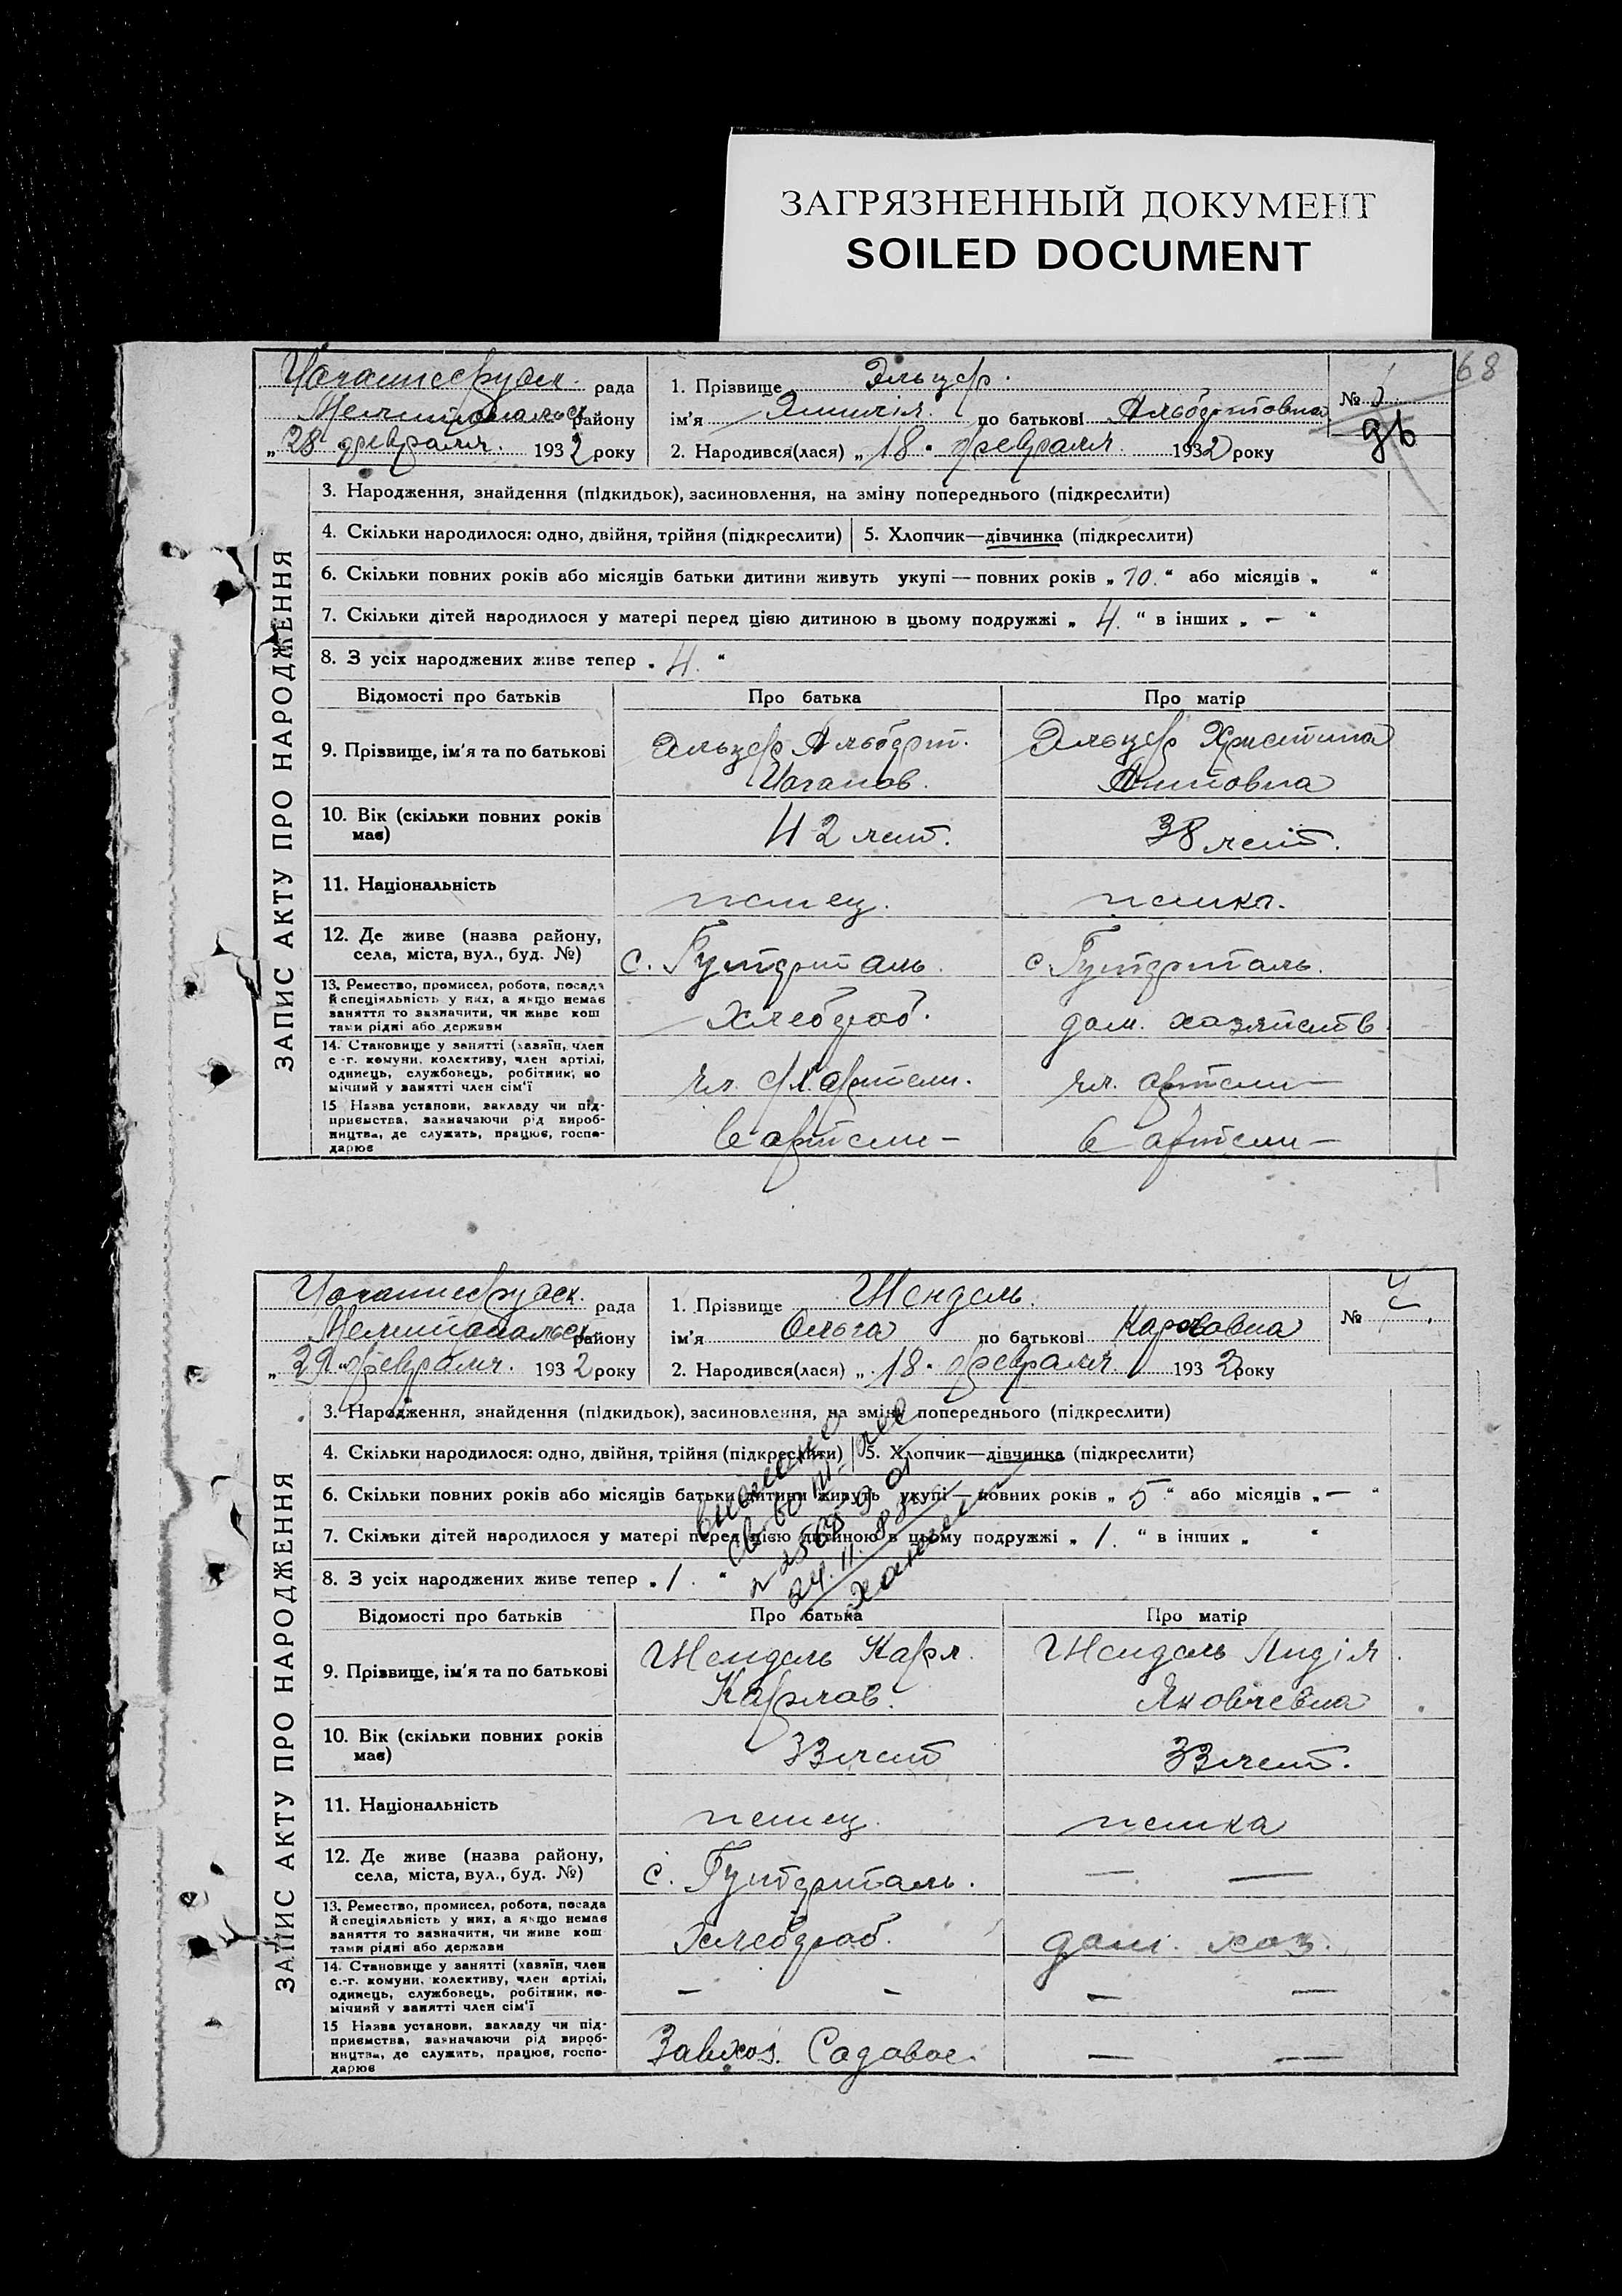 ЗАГРЯЗНЕННЫЙ ДОКУМЕНТ
SOILED DOCUMENT
68
ЗАПИС АКТУ ПРО НАРОДЖЕННЯ
Иоганнесрудск. рада
Мелитопольск району
„28 февраля. 1932 року
1. Прізвище Эльцер.
ім'я Эмилія. по батькові Альбертовна
2. Народився(лася) „18" февраля 1932 року
№
3. Народження, знайдення (підкидьок), засиновлення, на зміну попереднього (підкреслити)
4. Скільки народилося: одно, двійня, трійня (підкреслити) 5. Хлопчик—дівчинка (підкреслити)
6. Скільки повних років або місяців батьки дитини живуть укупі — повних років „10." або місяців „ "
7. Скільки дітей народилося у матері перед цією дитиною в цьому подружжі „ 4. " в інших „ – "
8. З усіх народжених живе тепер „4. "
Відомості про батьків Про батька Про матір
9. Прізвище, ім'я та по батькові Эльцер Альберт. Эльцер Христина
Иоганов. Антовна
10. Вік (скільки повних років має) 42 лет. 38 лет.
11. Національність немец. немка.
12. Де живе (назва району, села, міста, вул., буд. №) с. Гутерталь. с. Гутерталь.
13. Ремество, промисел, робота, посада
й спеціяльність у них, а якщо немає
заняття то зазначити, чи живе кош
тами рідні або держави
Хлебороб. дом. хозяйств
14. Становище у занятті (хазяїн, член
с.-г. комуни, колективу, член артілі,
одинець, службовець, робітник, по
мічний у занятті член сім'ї
чл. артели. чл. артели
15 Назва установи, закладу чи під-
приємства, зазначаючи рід вироб-
ництва, де служить, працює, госпо-
дарює
в артели – в артели –
ЗАПИС АКТУ ПРО НАРОДЖЕННЯ
Иоганнесрудск. рада
Мелитопольск району
„29" февраля. 1932 року
1. Прізвище Шендель.
ім'я Ольга по батькові Карловна
2. Народився(лася) „18" февраля 1932 року
№
3. Народження, знайдення (підкидьок), засиновлення, на зміну попереднього (підкреслити)
4. Скільки народилося: одно, двійня, трійня (підкреслити) 5. Хлопчик—дівчинка (підкреслити)
6. Скільки повних років або місяців батьки дитини живуть укупі — повних років „ 5 " або місяців „ – "
7. Скільки дітей народилося у матері перед цією дитиною в цьому подружжі „ 1. " в інших „ "
8. З усіх народжених живе тепер „1. "
Відомості про батьків Про батька Про матір
9. Прізвище, ім'я та по батькові Шендель Карл. Шендель Лидія
Карлов. Яковлевна
10. Вік (скільки повних років має) 33 лет 33 лет.
11. Національність немец. немка
12. Де живе (назва району, села, міста, вул., буд. №) с. Гутерталь. — —
13. Ремество, промисел, робота, посада
й спеціяльність у них, а якщо немає
заняття то зазначити, чи живе кош
тами рідні або держави
Хлебороб. дом. хоз.
14. Становище у занятті (хазяїн, член
с.-г. комуни, колективу, член артілі,
одинець, службовець, робітник, по-
мічний у занятті член сім'ї
– – – –
15 Назва установи, закладу чи під-
приємства, зазначаючи рід вироб-
ництва, де служить, працює, госпо-
дарює
Завхоз. Садовое. — —